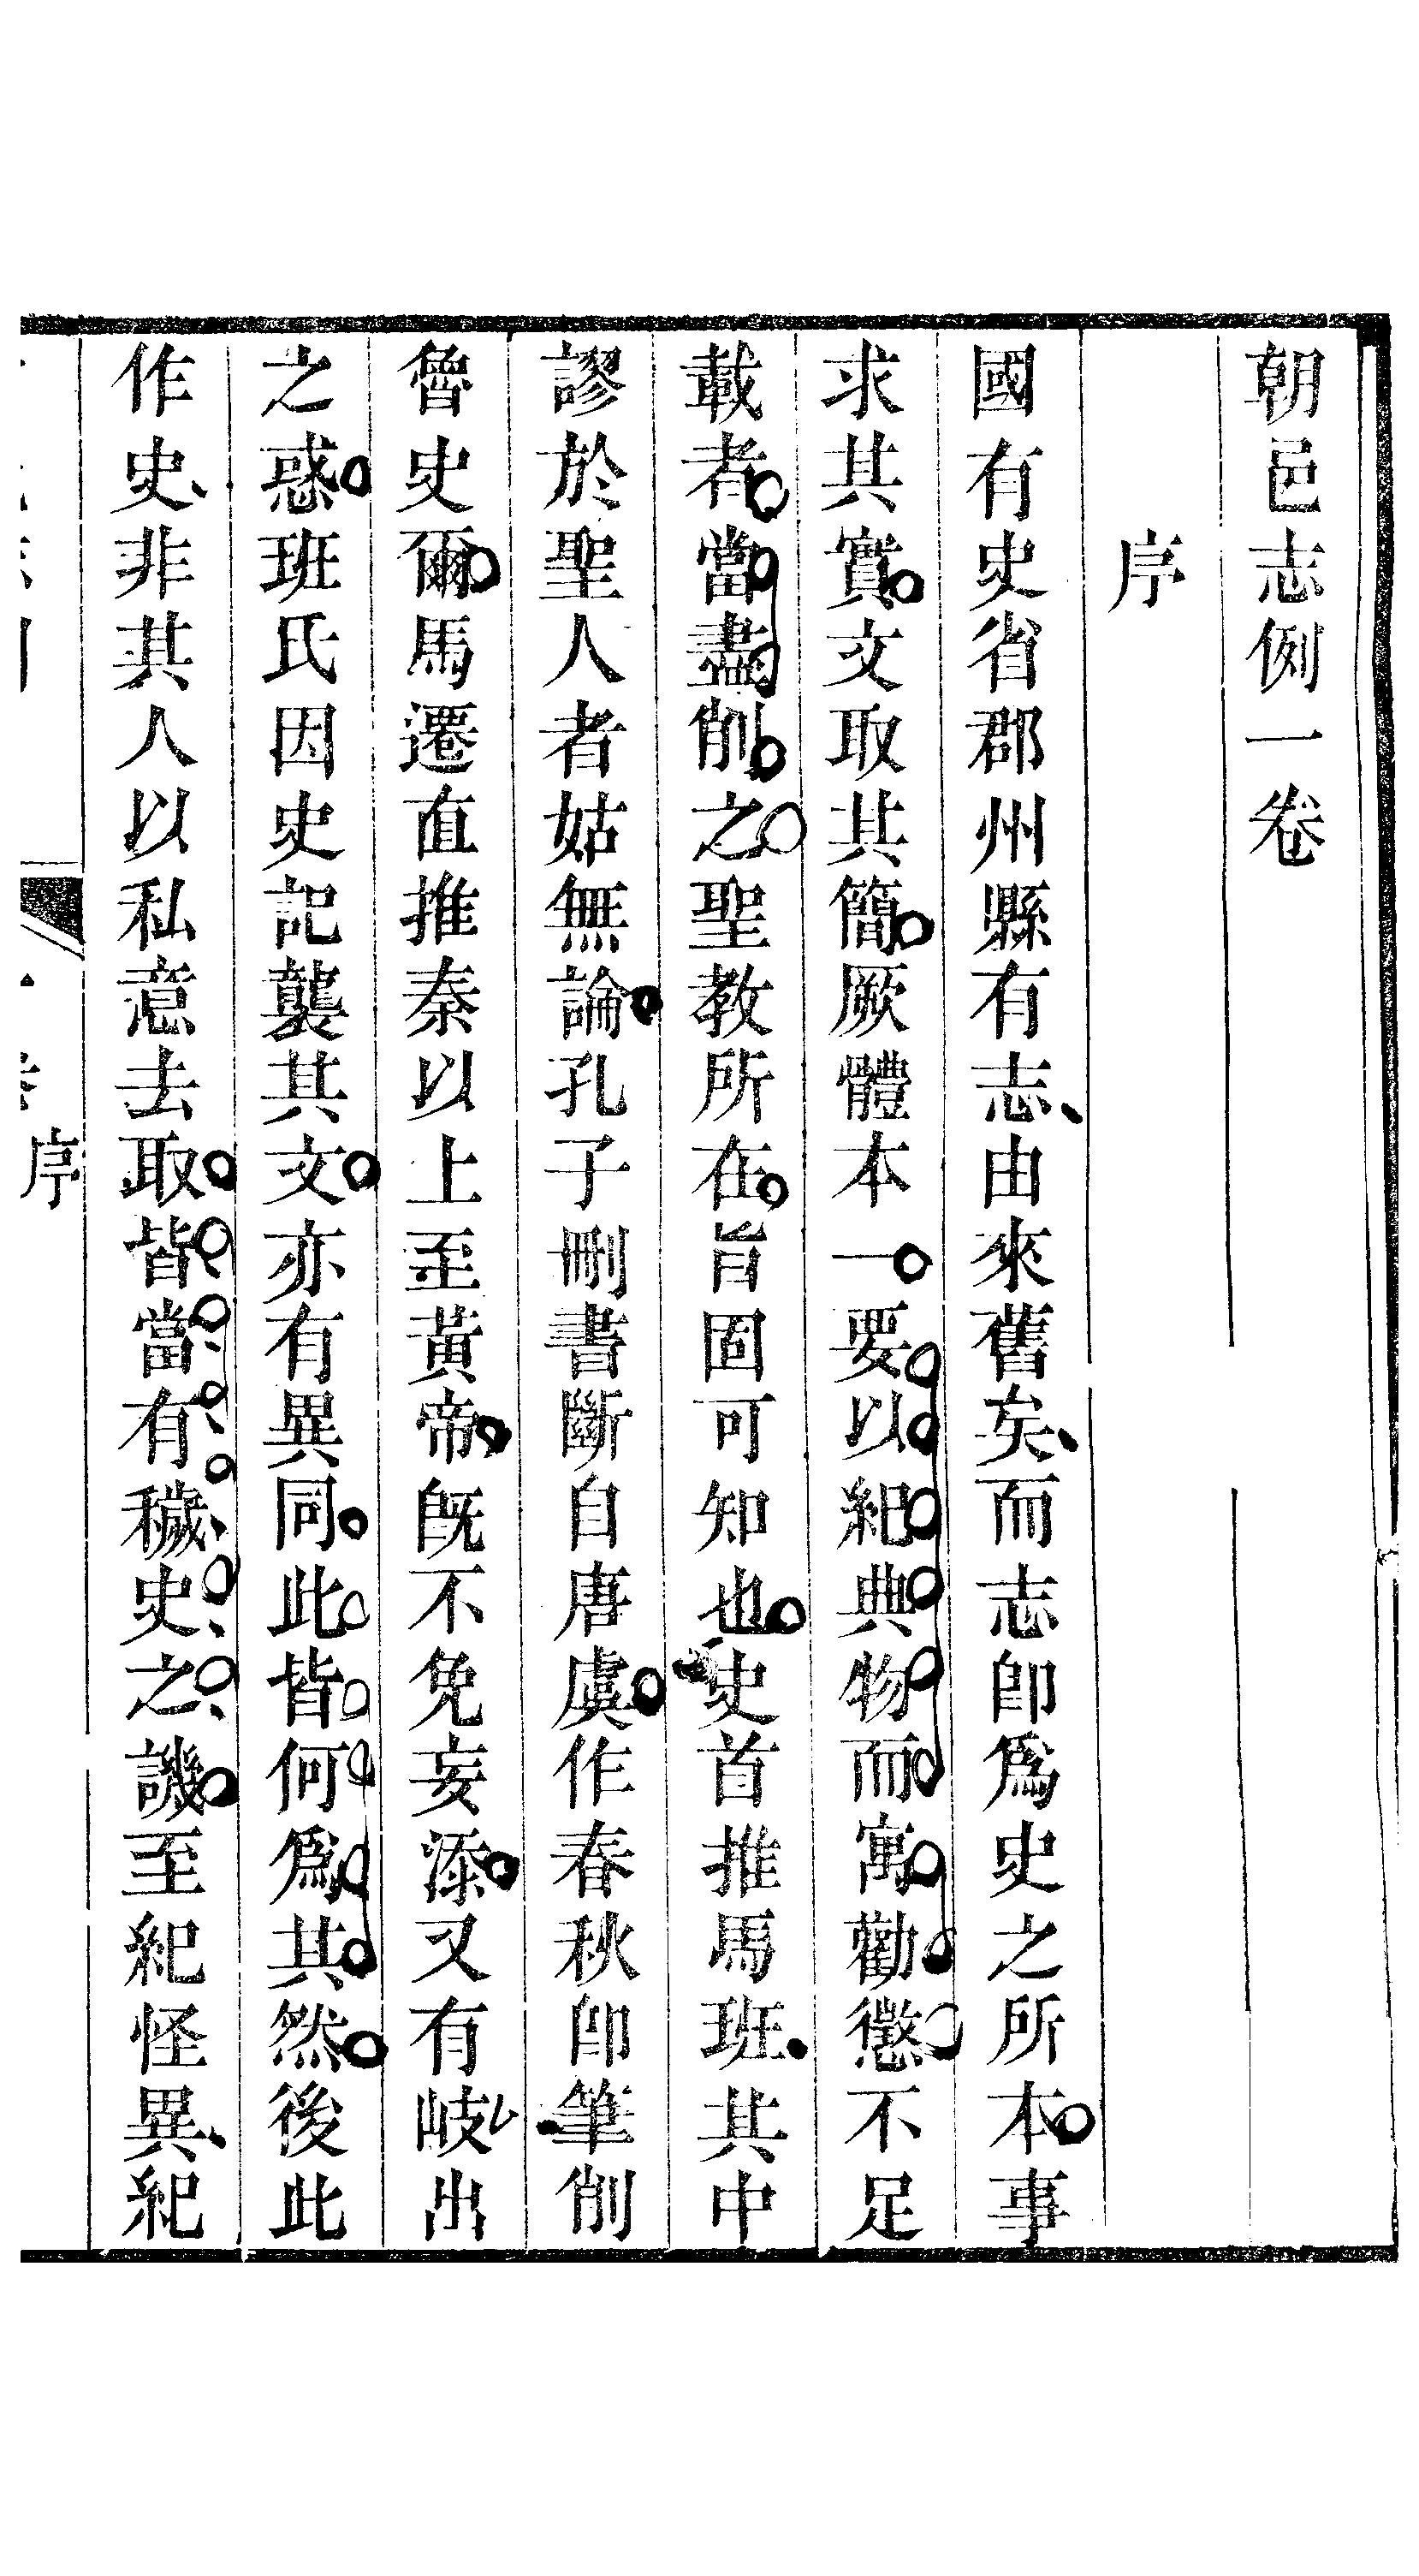 朝邑志例一卷
序
國有史省郡州縣有志由來舊矣而志卽爲史之所本事
求其實文取其簡厥體本一要以紀典物而寓勸懲不足
載者當盡削之聖教所在旨固可知也史首推馬班其中
謬於聖人者姑無論孔子刪書斷自唐虞作春秋卽筆削
魯史爾馬遷直推秦以上至黃帝旣不免妄添又有岐出
之惑班氏因史記襲其文亦有異同此皆何爲其然後此
作史非其人以私意去取皆當有穢史之譏至紀怪異紀
序